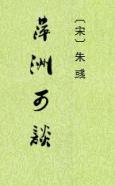 〔宋〕朱彧
萍洲可談